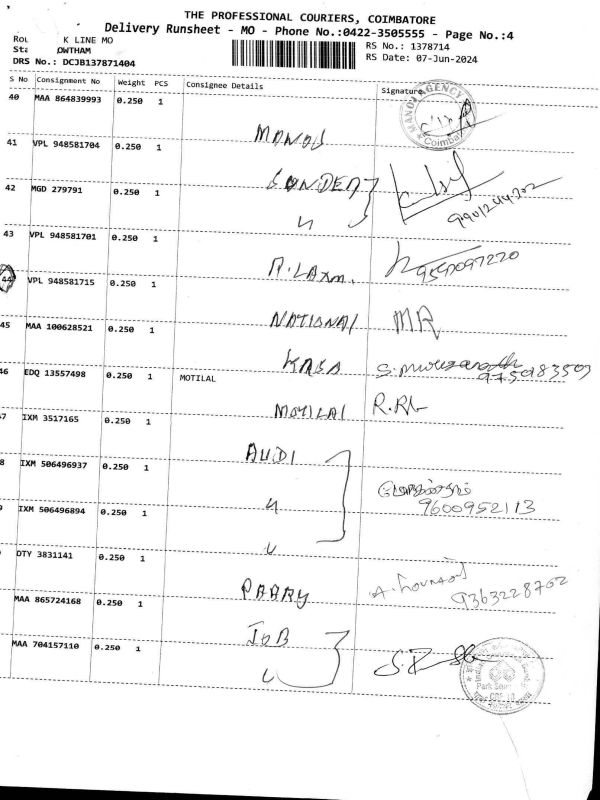 THE PROFESSIONAL COURIERS, COIMBATORE
Delivery Runsheet - MO - Phone No.:0422-3505555 - Page No.:4
K LINE MO
RS No.: 1378714
OWTHAM
RS Date: 07-Jun-2024
DRS No.: DCJB137871404
S No Consignment No Weight PCS Consignee Details Signature
40 MAA 864839993 0.250 1 MANOJ
MANOJ AGENCY Coimbatore
41 VPL 948581704 0.250 1
42 MGD 279791 0.250 1
9901244202
43 VPL 948581701 0.250 1 A.LAXM.
9590097220
44 VPL 948581715 0.250 1 NATIONAL MR
45 MAA 100628521 0.250 1
46 EDQ 13557498 0.250 1 MOTILAL MOTILAL
7 IXM 3517165 0.250 1 AUDI
8 IXM 506496937 0.250 1 "
9600952113
IXM 506496894 0.250 1 "
OTY 3831141 0.250 1 PARRY
9363228702
MAA 865724168 0.250 1 IOB
MAA 704157110 0.250 1 "